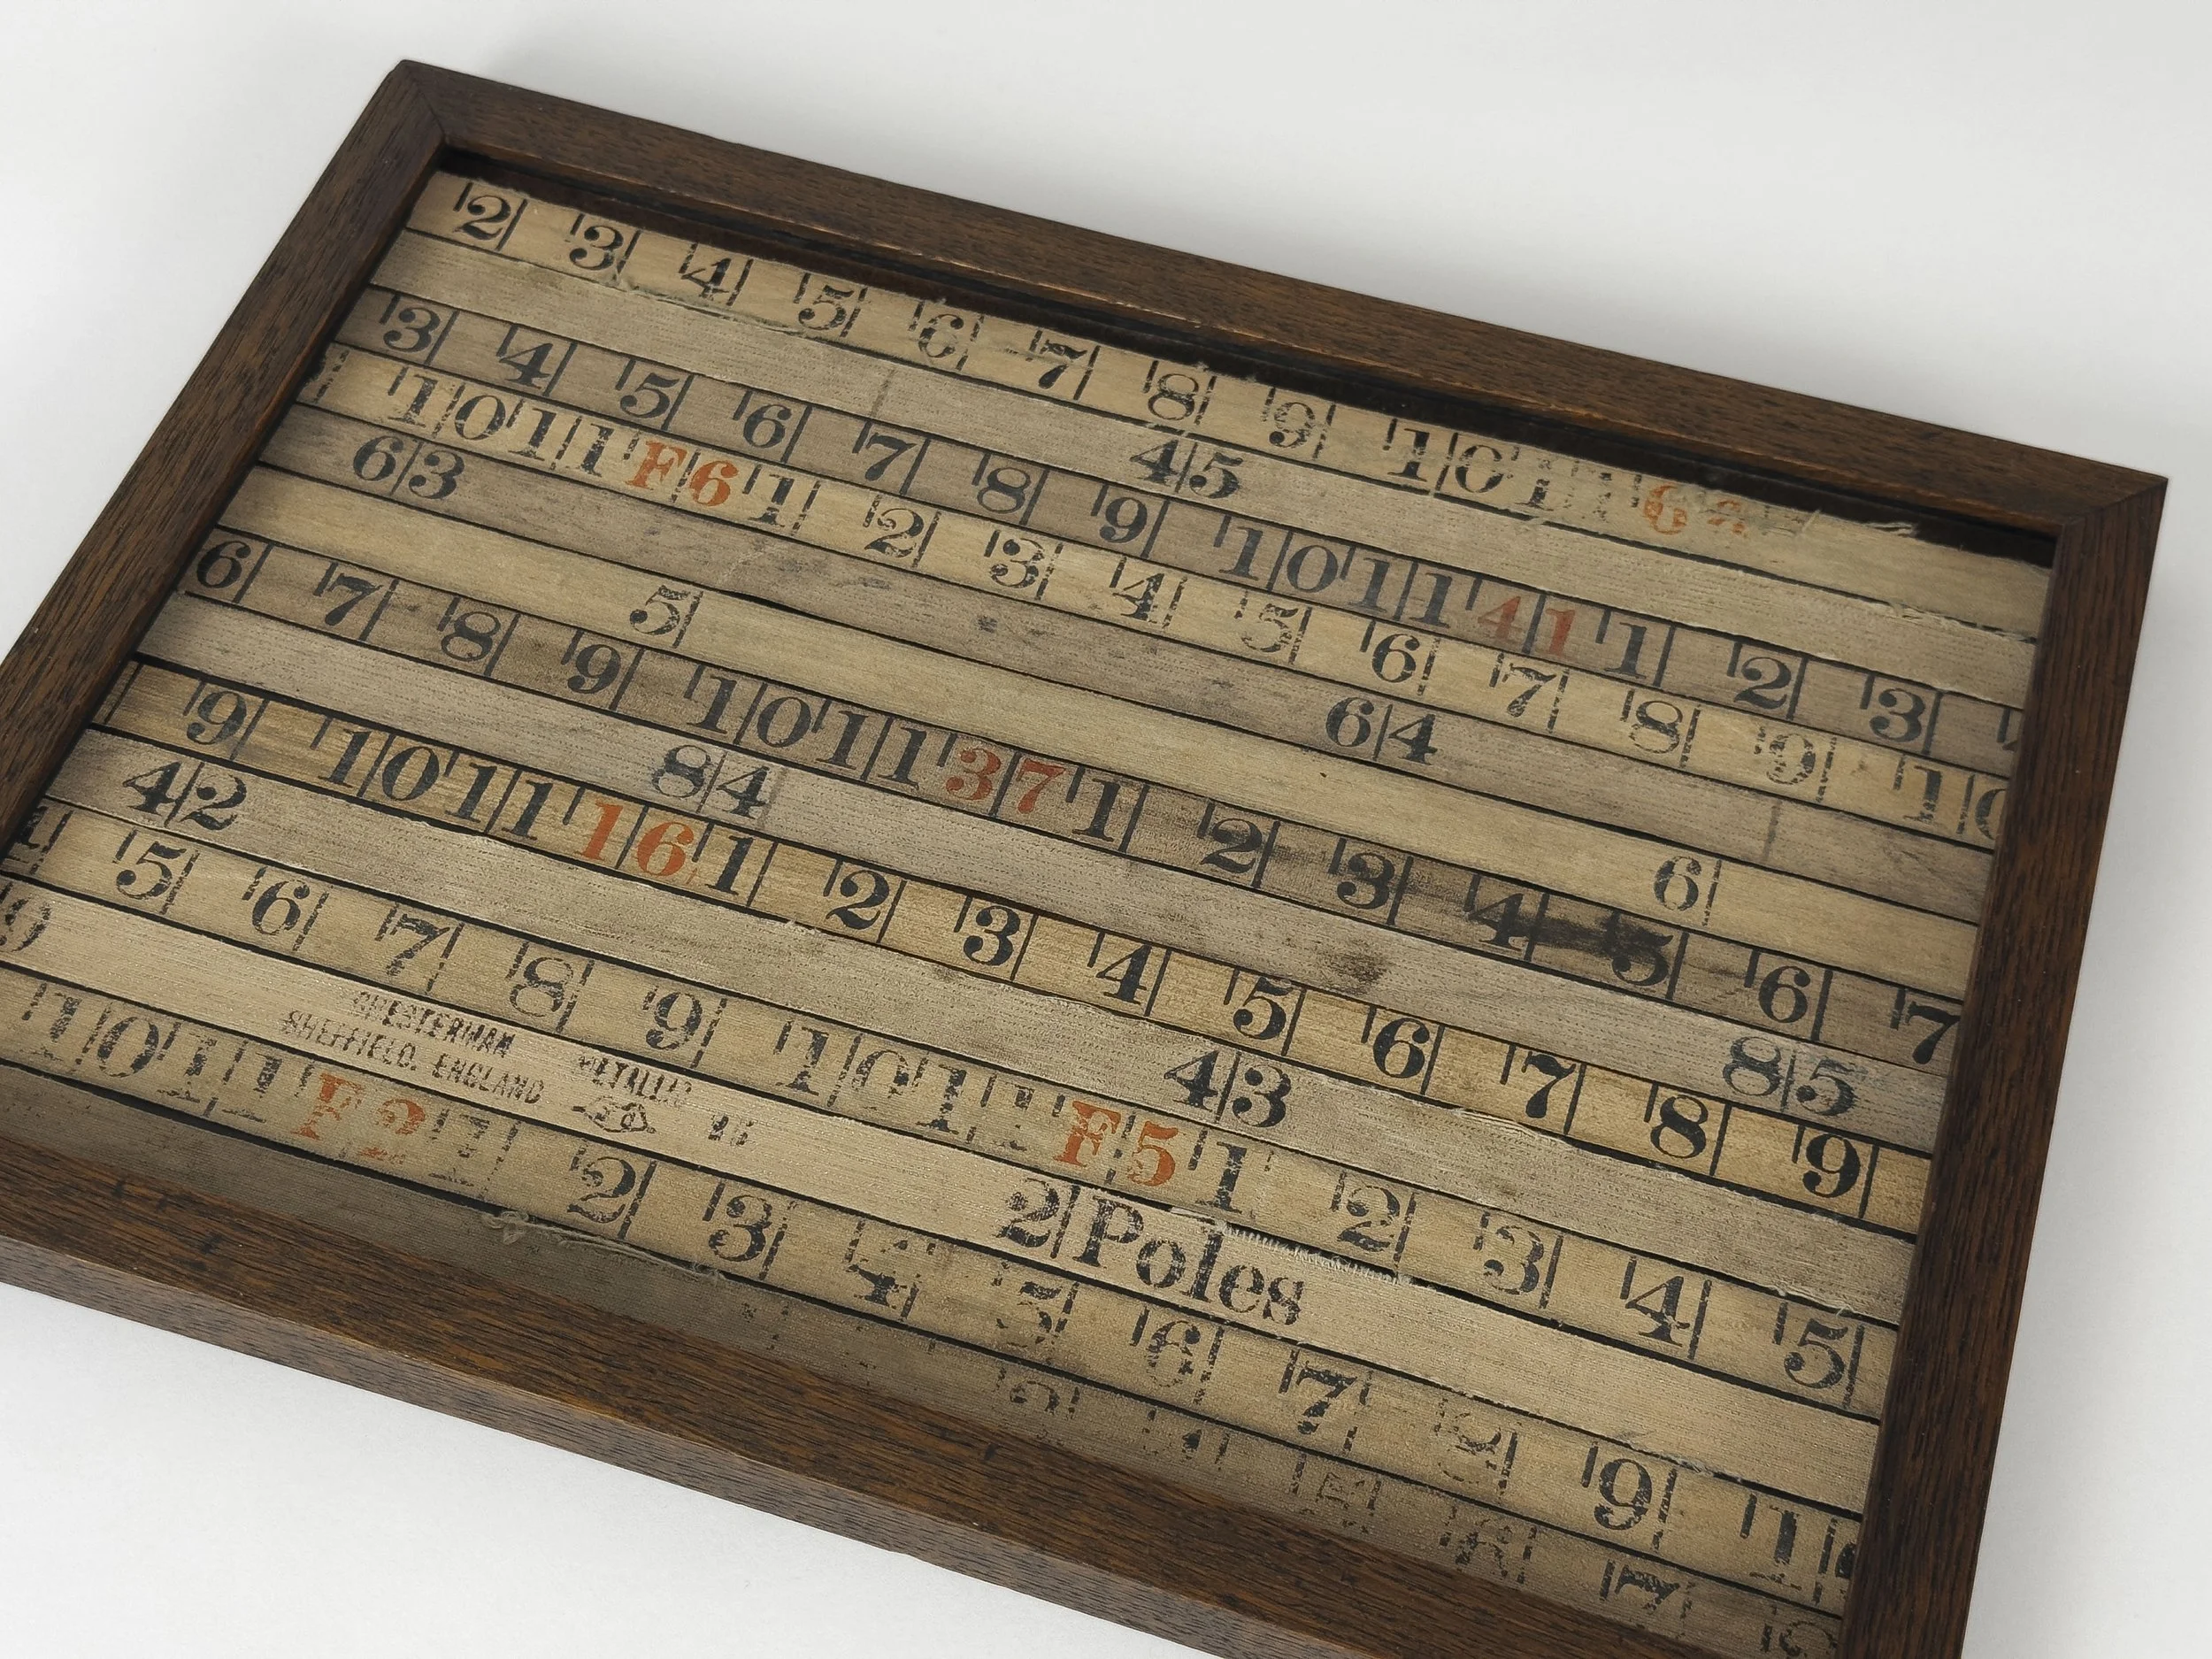 2 3 4 5 6 7 8 9 10 11
45
3 4 5 6 7 8 9 10 11 41 1 2 3
1011 F6 1 2 3 4 5 6 7 8 9
63 64
5 6
6 7 8 9 10 11 37 1 2 3 4 5 6 7
84 85
9 10 11 16 1 2 3 4 5 6 7 8 9
42 43
5 6 7 8 9 10 11 F5 1 2 3 4 5
9
CHESTERMAN
SHEFFIELD. ENGLAND METALLIC
2 Poles
10 11 F2 1 2 3 4 5 6 7 8 9
7